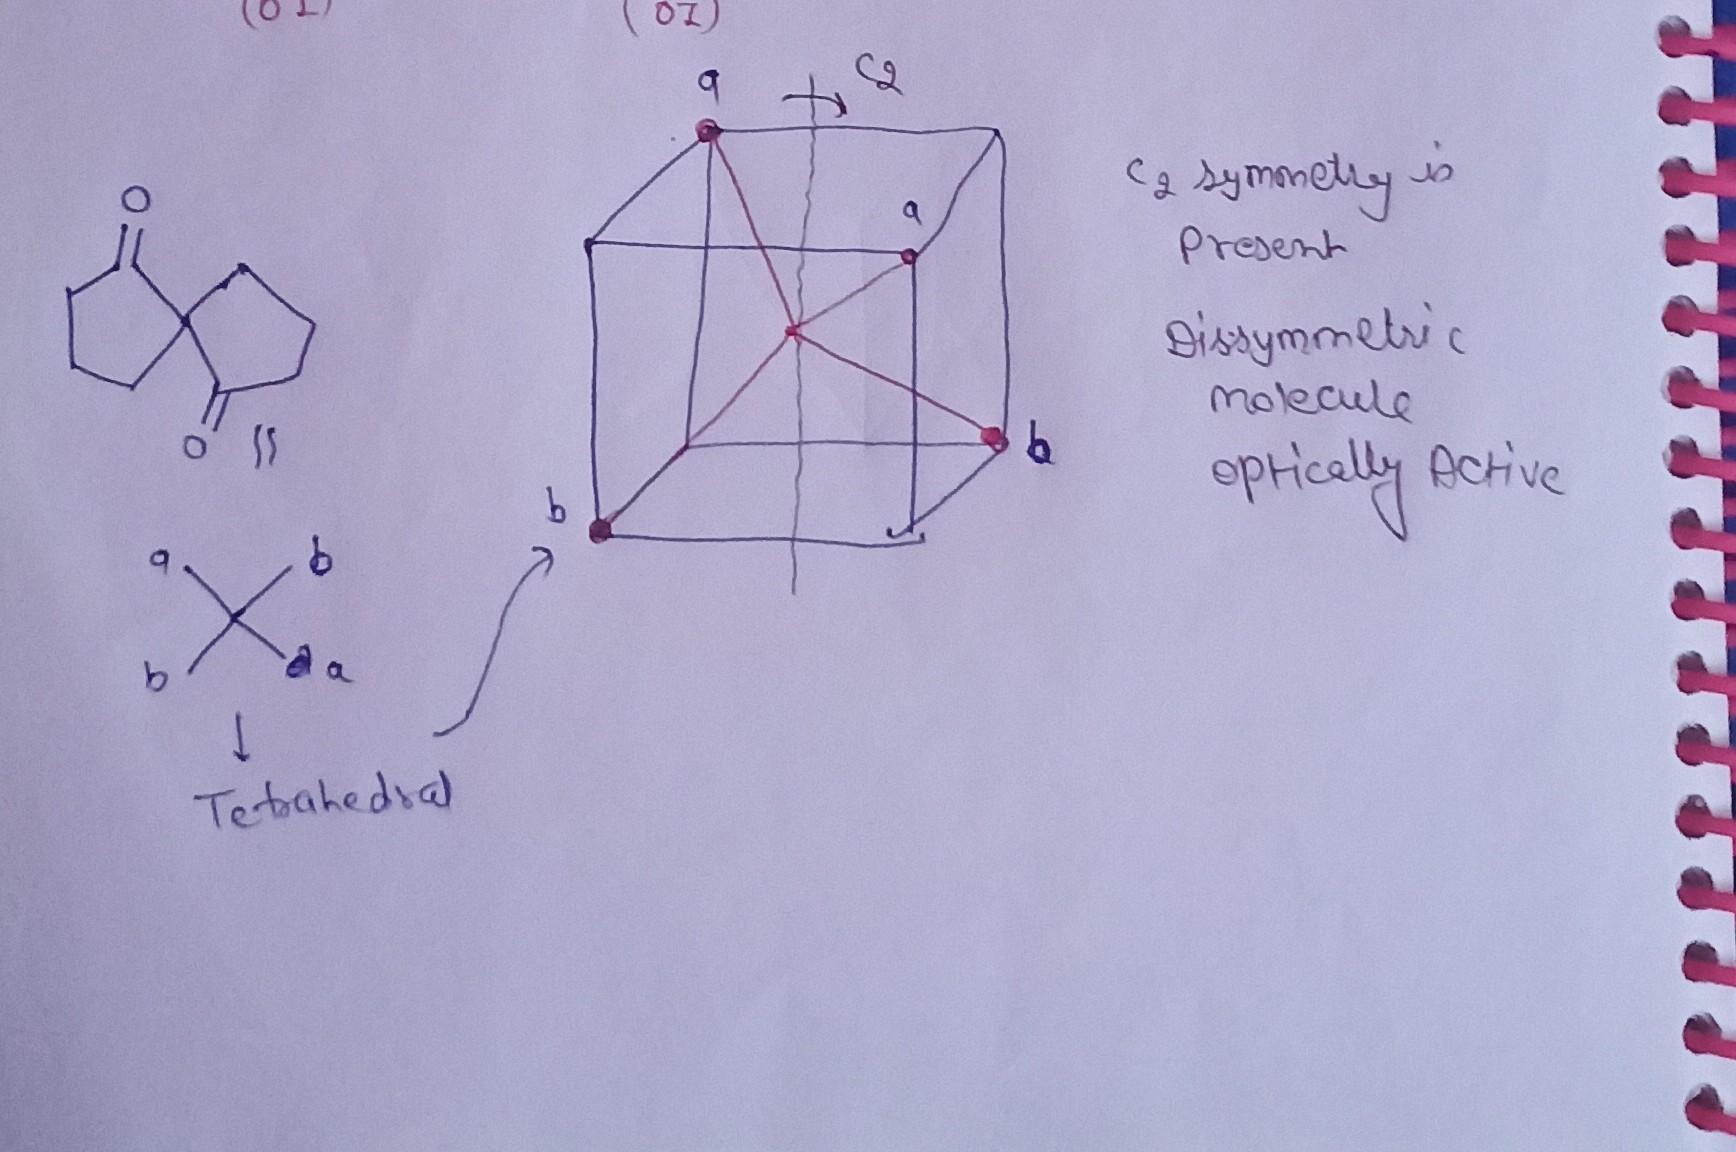 (OI)
(OI)
a
C2
a
b
b
O
O
a b
b a
↓
Tetrahedral
C2 symmetry is
Present
Dissymmetric
molecule
optically Active